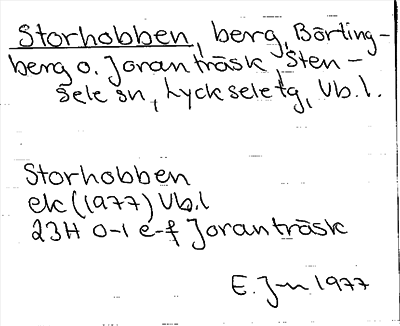 Storhobben, berg, Börting-
berg o. Joranträsk, Sten-
sele sn, Lycksele tg, Vb.l.
Storhobben
ek (1977) Vb.l
23H 0-1 e-f Joranträsk
E. Jn 1977